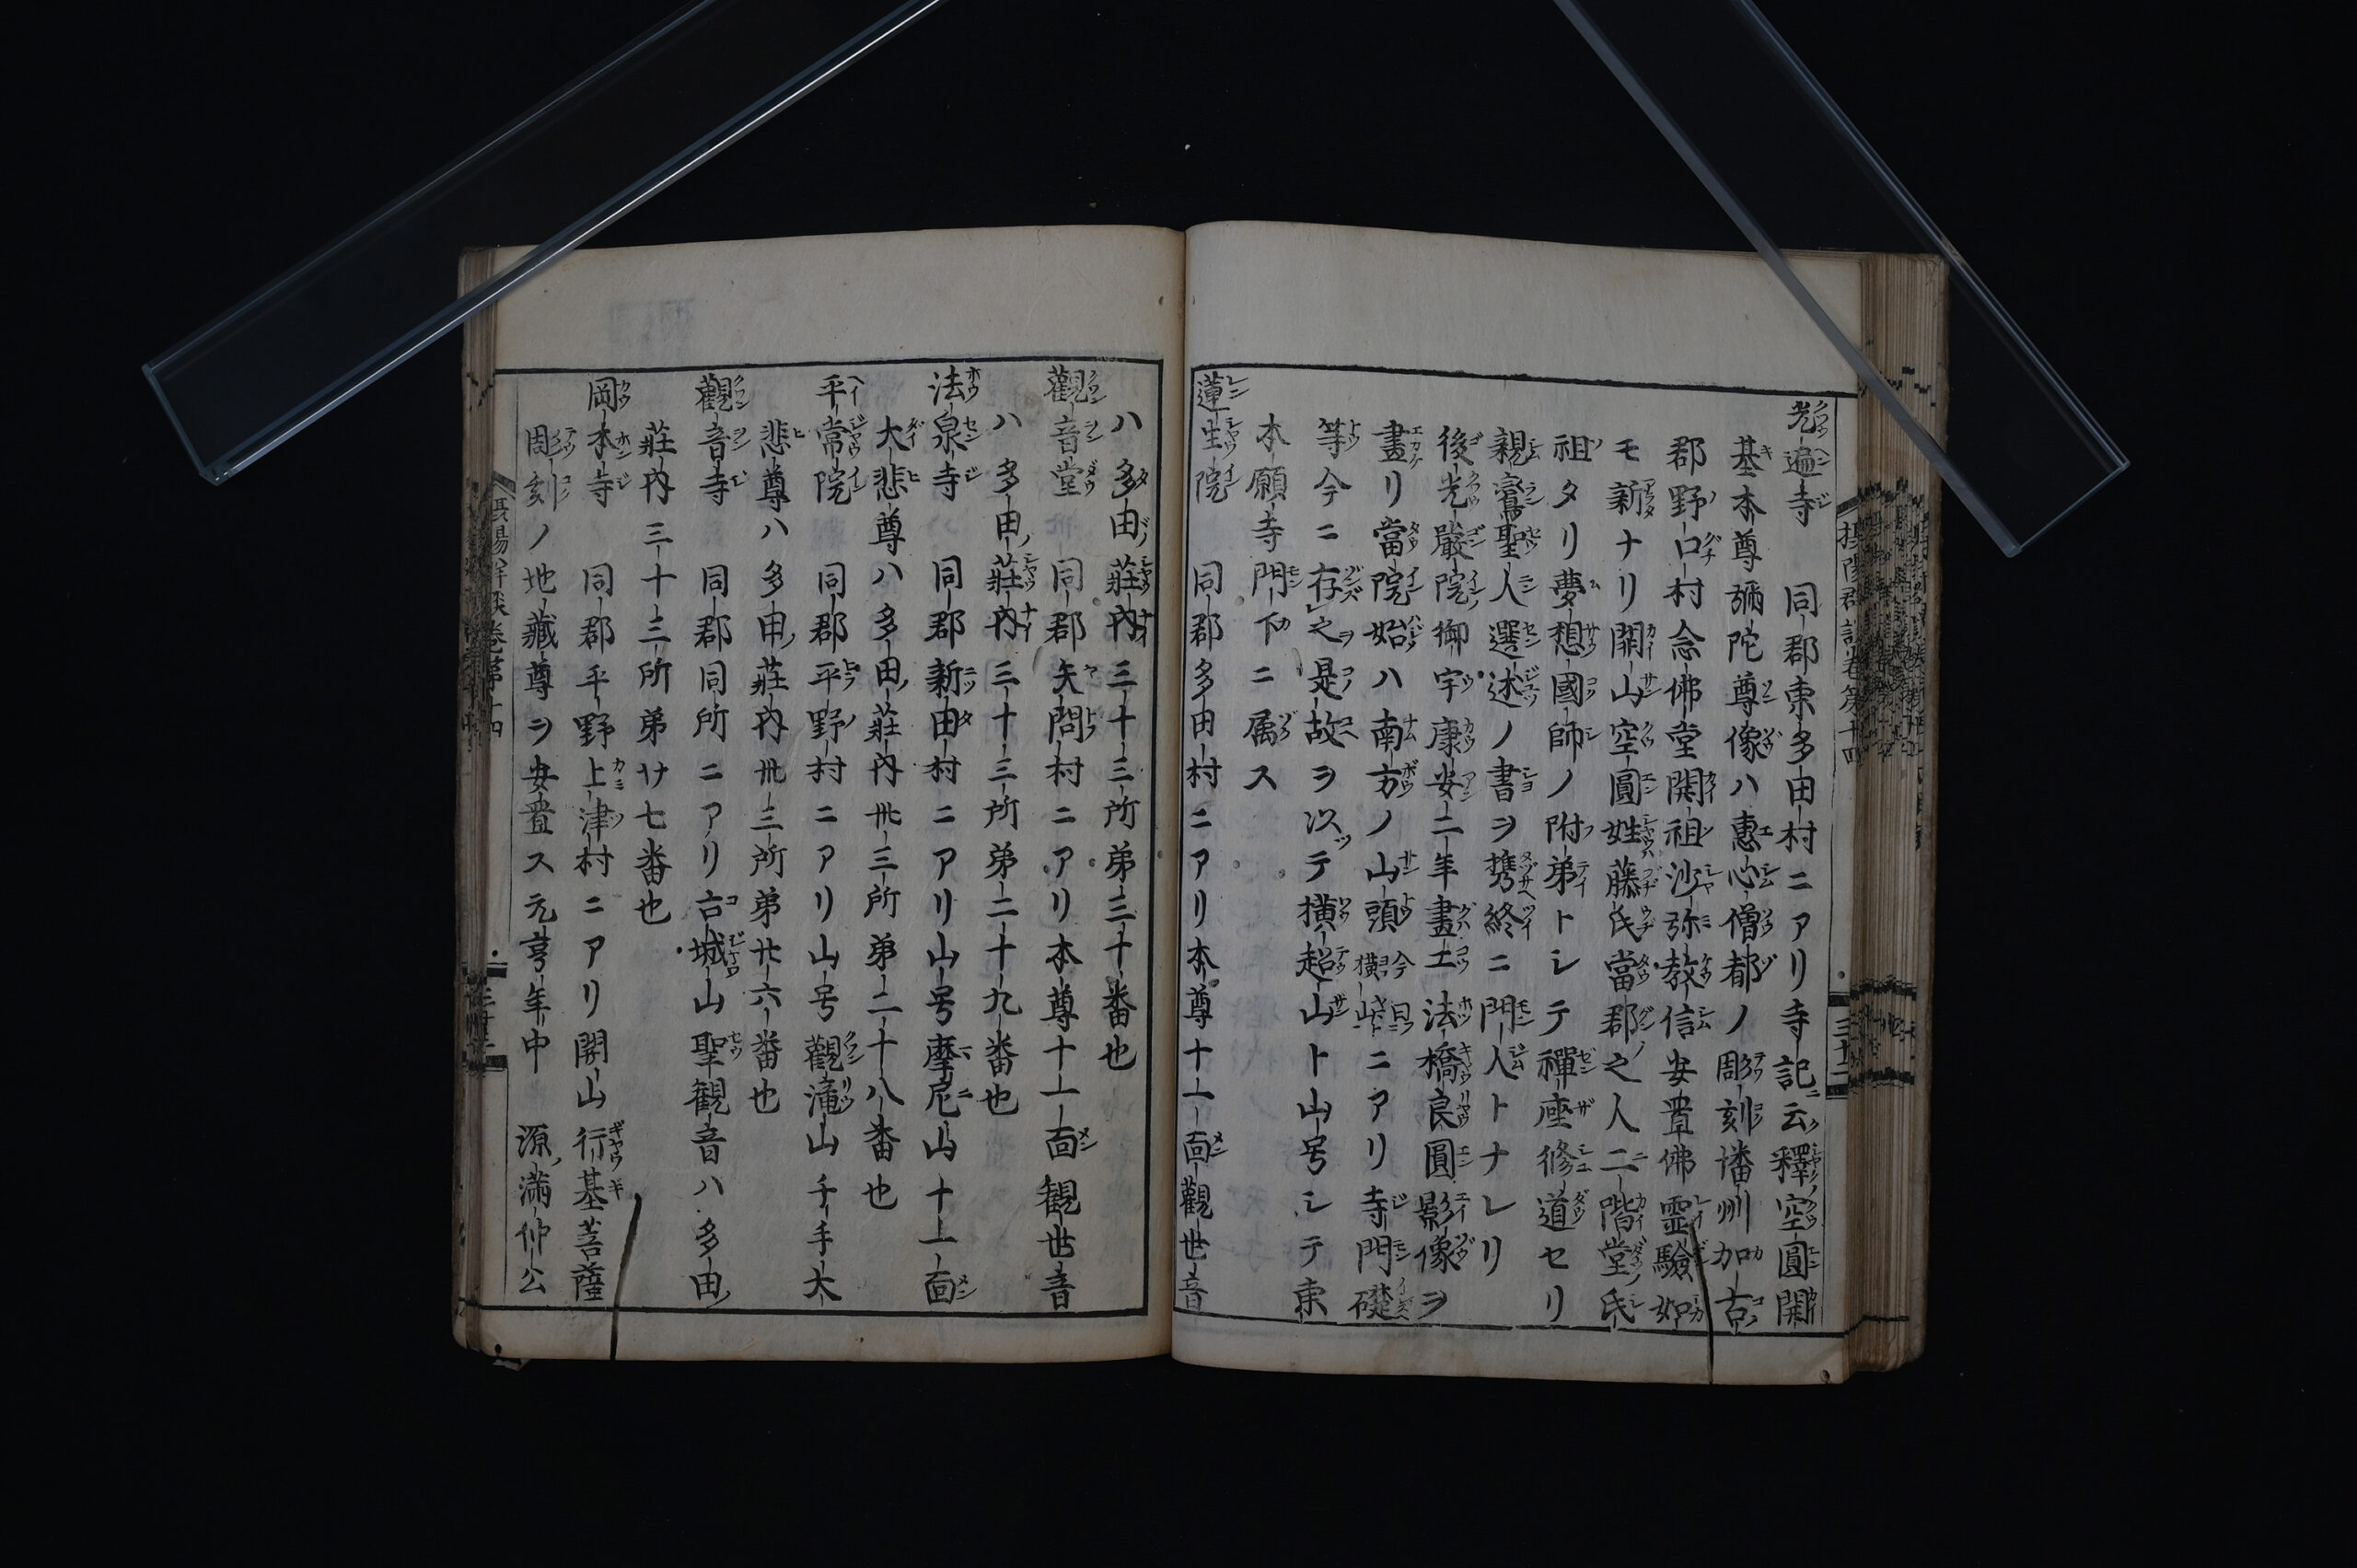 光遍寺　同郡東多田村ニアリ寺記云釋空圓開
基本尊彌陀尊像ハ惠心僧都ノ彫刻播州加古
郡野口村念佛堂開祖沙弥教信安置佛靈驗如
モ新ナリ開山空圓姓藤氏當郡之人二階堂氏
祖タリ夢想國師ノ附弟トシテ禪座修道セリ
親鸞聖人選述ノ書ヲ携終ニ門人トナレリ
後光嚴院御宇康安二年畫工法橋良圓影像ヲ
畫リ當院始ハ南方ノ山頭今曰横山ニアリ寺門礎
等今ニ存之是故ヲ以テ横超山ト山号シテ東
本願寺門下ニ属ス
蓮生院　同郡多田村ニアリ本尊十一面觀世音
ハ多田莊内三十三所第三十番也
觀音堂　同郡矢問村ニアリ本尊十一面観世音
ハ多田莊内三十三所第二十九番也
法泉寺　同郡新田村ニアリ山号摩尼山十一面
大悲尊ハ多田莊内卅三所第二十八番也
平常院　同郡平野村ニアリ山号觀滝山千手大
悲尊ハ多田莊内卅三所第廿六番也
觀音寺　同郡同所ニアリ古城山聖観音ハ多田
莊内三十三所第廿七番也
岡本寺　同郡平野上津村ニアリ開山行基菩薩
彫刻ノ地藏尊ヲ安置ス元亨年中　源満仲公